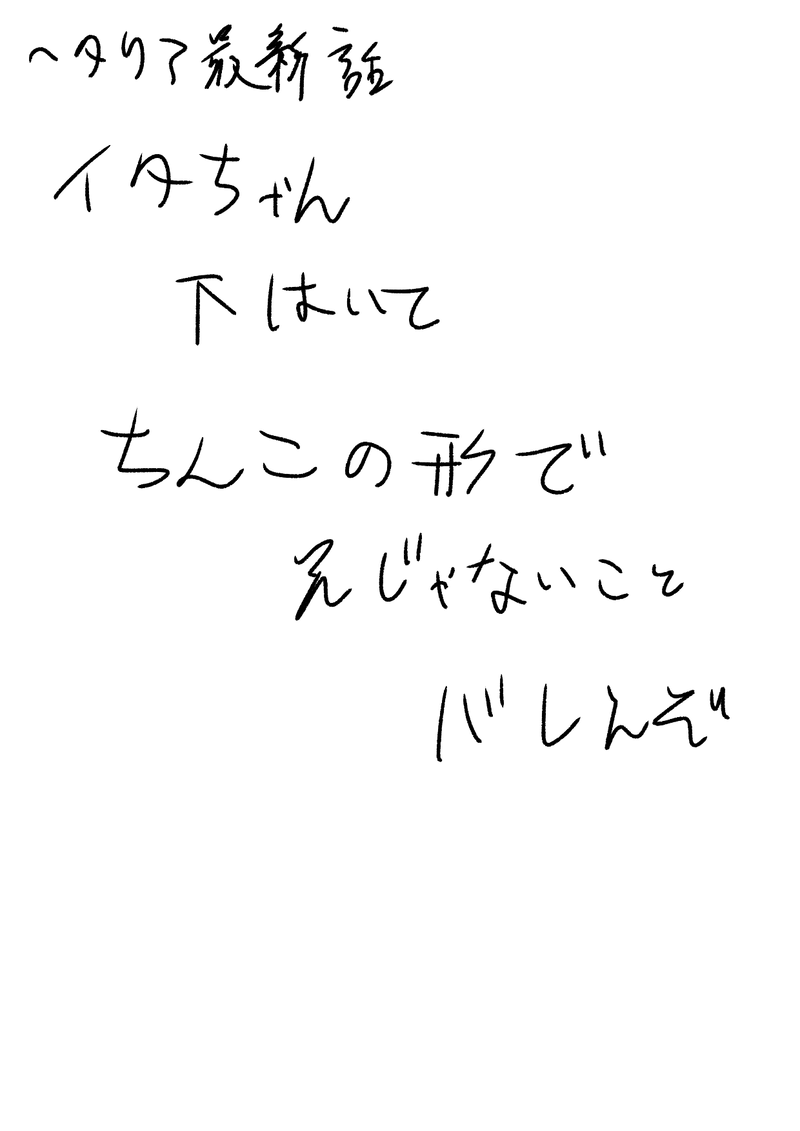 ヘタリア最新話
イタちゃん
下はいて
ちんこの形で
兄じゃないこと
バレんぞ